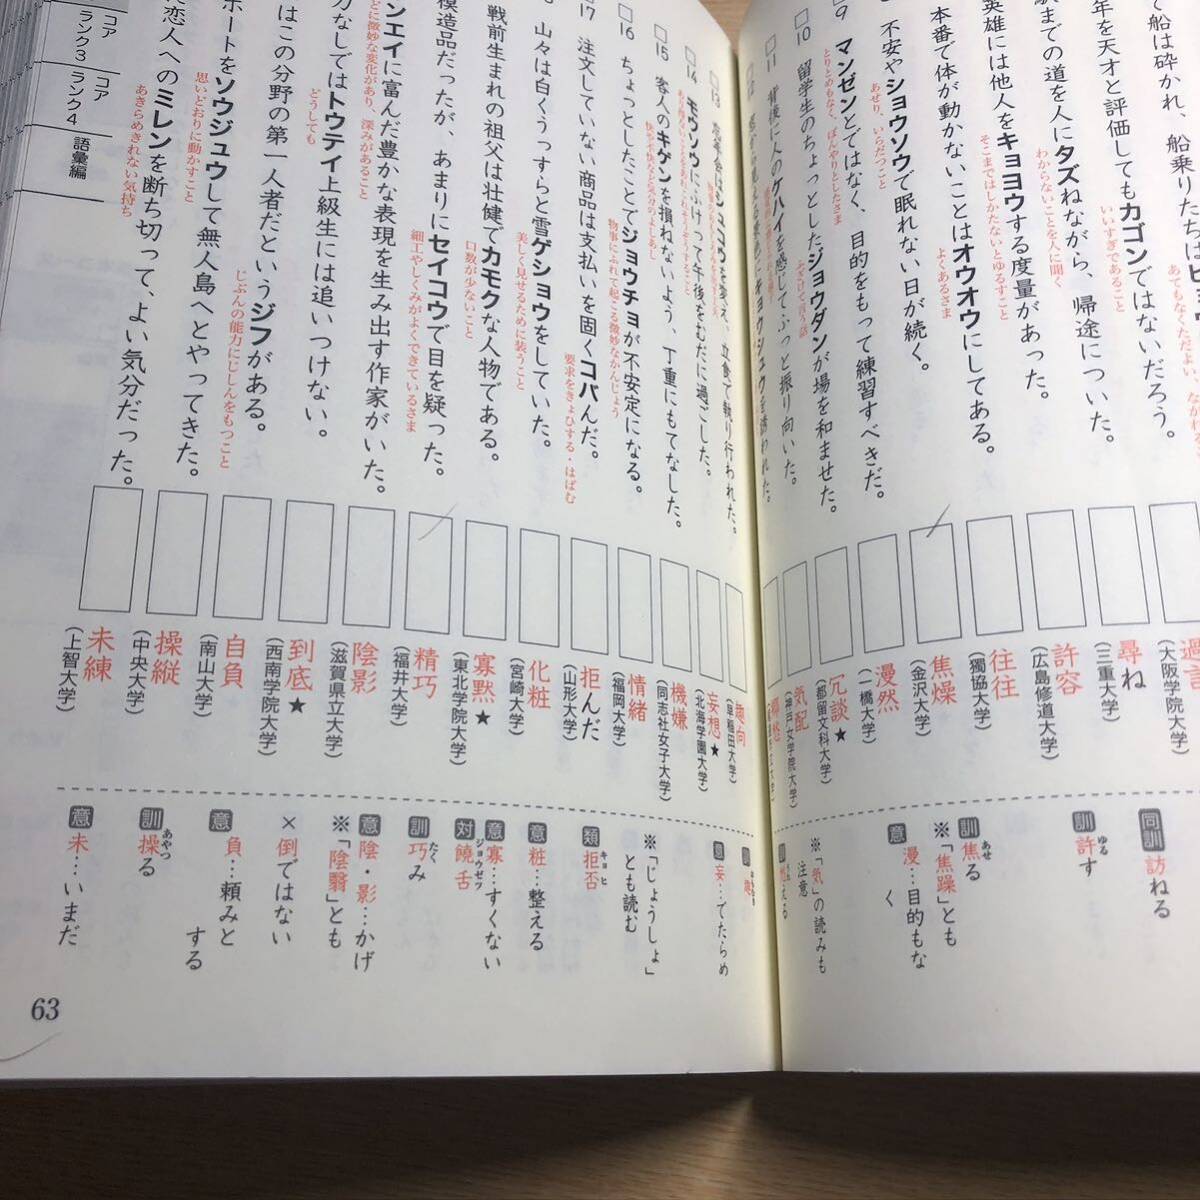 て船は砕かれ、船乗りたちは
あてもなくただよい、ながれ
過言
(大阪学院大
年を天才と評価してもカゴンではないだろう。
いいすぎであること
尋ね
(三重大学)
同訓 訪ねる
駅までの道を人にタズねながら、帰途についた。
わからないことを人に聞く
許容
(広島修道大学)
訓 許す
ゆる
英雄には他人をキョヨウする度量があった。
そこまではしかたないとゆるすこと
往往
(獨協大学)
本番で体が動かないことはオウオウにしてある。
よくあるさま
焦燥
(金沢大学)
訓 焦る
あせ
※「焦躁」とも
不安やショウソウで眠れない日が続く。
あせり、いらだつこと
漫然
(一橋大学)
意 漫…目的もなく
□9 マンゼンとではなく、目的をもって練習すべきだ。
とりとめもなく、ぼんやりとしたさま
冗談★
(都留文科大学)
□10 留学生のちょっとしたジョウダンが場を和ませた。
ふざけて言う話
気配
(神戸女学院大学)
※「気」の読みも注意
□11 背後に人のケハイを感じてふっと振り向いた。
□12
□13 忘年会はシュコウを変え、立食で執り行われた。
趣向
(早稲田大学)
□14 モウソウにふけって午後をむだに過ごした。
妄想★
(北海学園大学)
意 妄…でたらめ
□15 客人のキゲンを損ねないよう、丁重にもてなした。
快や不快などの気分のよしあし
機嫌
(同志社女子大学)
□16 ちょっとしたことでジョウチョが不安定になる。
物事にふれて起こる微妙なかんじょう
情緒
(福岡大学)
※「じょうしょ」とも読む
□17 注文していない商品は支払いを固くコバんだ。
要求をきょひする・はばむ
拒んだ
(山形大学)
類 拒否
キョヒ
山々は白くうっすらと雪ゲショウをしていた。
美しく見せるために装うこと
化粧
(宮崎大学)
意 粧…整える
戦前生まれの祖父は壮健でカモクな人物である。
口数が少ないこと
寡黙★
(東北学院大学)
意 寡…すくない
対 饒舌
ジョウゼツ
模造品だったが、あまりにセイコウで目を疑った。
細工やしくみがよくできているさま
精巧
(福井大学)
訓 巧み
たく
ンエイに富んだ豊かな表現を生み出す作家がいた。
どに微妙な変化があり、深みがあること
陰影
(滋賀県立大学)
意 陰・影…かげ
※「陰翳」とも
力なしではトウテイ上級生には追いつけない。
どうしても
到底★
(西南学院大学)
×倒ではない
はこの分野の第一人者だというジフがある。
じぶんの能力にじしんをもつこと
自負
(南山大学)
意 負…頼みとする
ボートをソウジュウして無人島へとやってきた。
思いどおりに動かすこと
操縦
(中央大学)
訓 操る
あやつ
恋人へのミレンを断ち切って、よい気分だった。
あきらめきれない気持ち
未練
(上智大学)
意 未…いまだ
コア
ランク3
コア
ランク4
語彙編
63